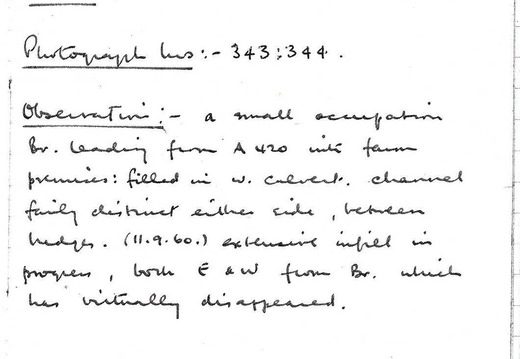 Photograph Nos:- 343:344.
Observation:- a small occupation
Br. leading from A420 into farm
premises: filled in w. culvert. channel
fairly distinct either side, between
hedges. (11.9.60.) extensive infill in
progress, both E & W from Br. which
has virtually disappeared.